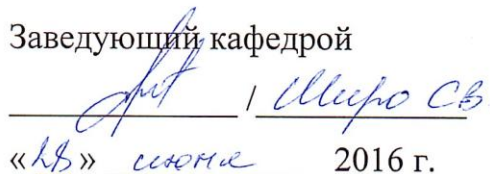 Заведующий кафедрой
/ Миро СВ
«28» июня 2016 г.